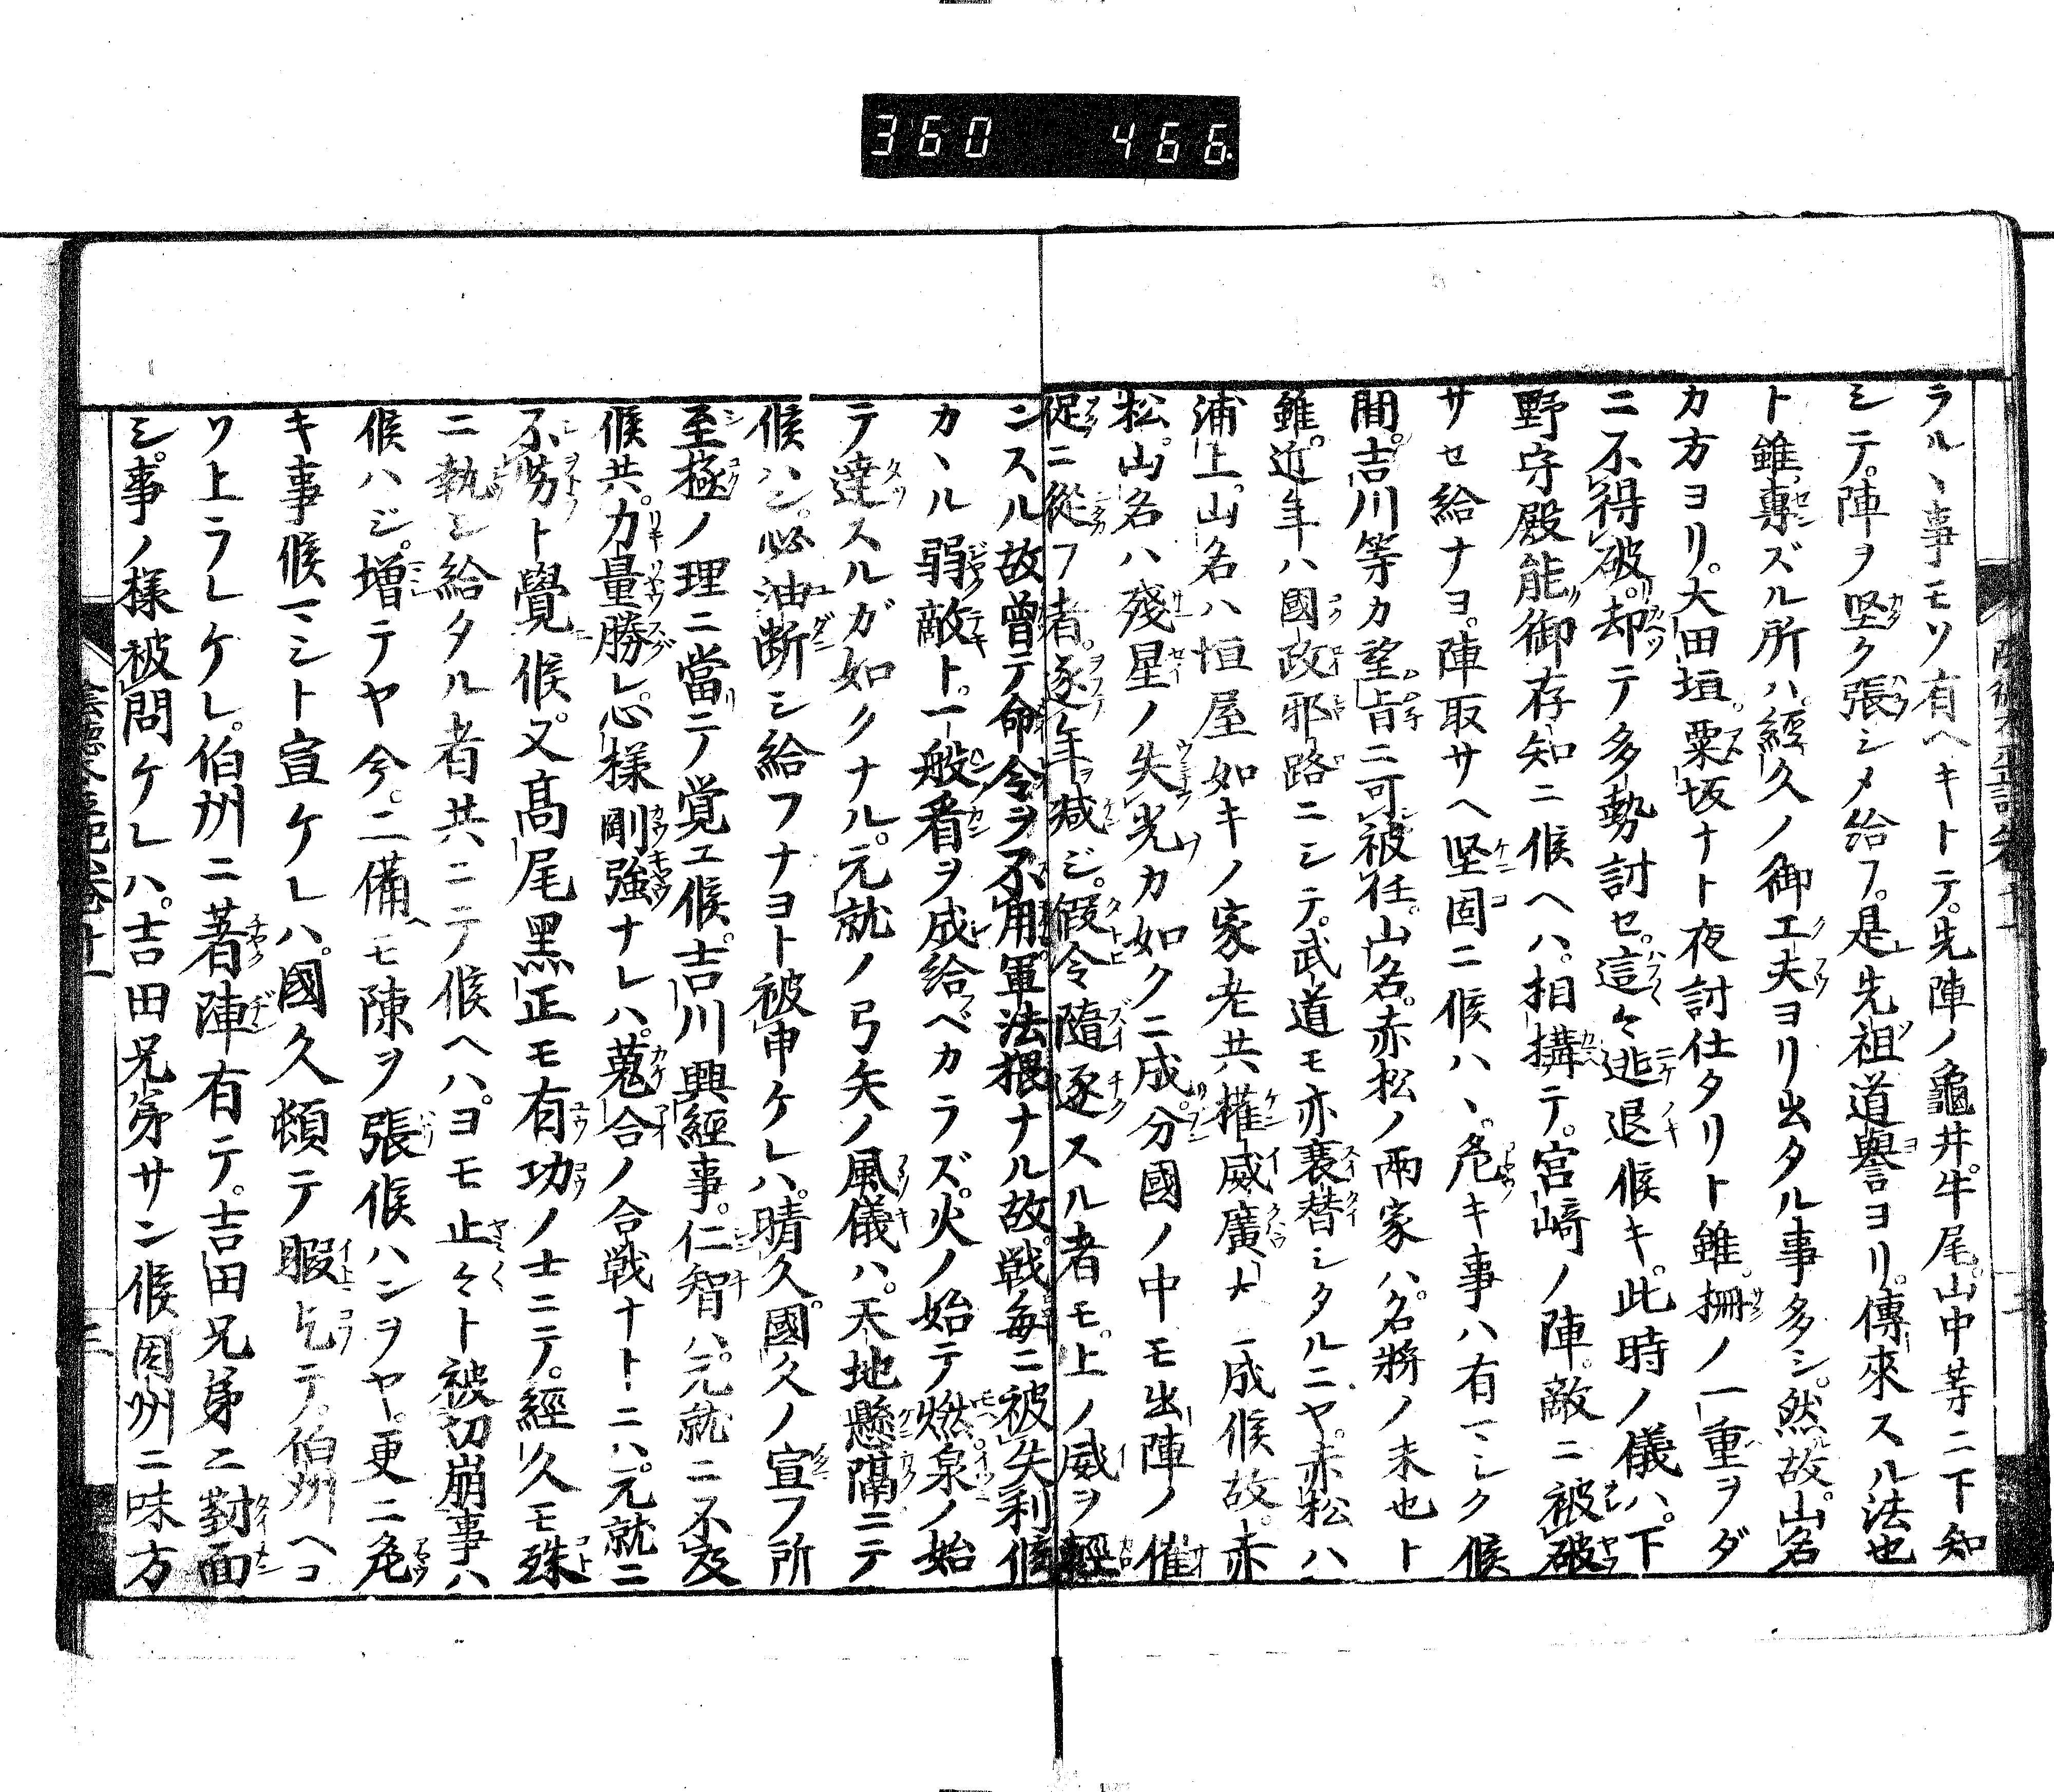 360 466
ラルヽ事モソ有ヘキトテ。先陣ノ龜井。牛尾。山中等ニ下知
シテ。陣ヲ堅ク張シメ給フ。是先祖道譽ヨリ。傳來スル法也
ト雖。專ズル所ハ。經久ノ御工夫ヨリ出タル事多シ。然故山名
カ方ヨリ。大田垣。粟坂ナト夜討仕タリト雖。柵ノ一重ヲダ
ニ不得破。却テ多勢討セ。這々逃退候キ。此時ノ儀ハ。下
野守殿能御存知ニ候ヘハ。相搆テ。宮﨑ノ陣。敵ニ被破
サセ給ナヨ。陣取サヘ堅固ニ候ハヽ。危キ事ハ有マシク候
間。吉川等カ望旨ニ可被任。山名。赤松ノ兩家ハ。名將ノ末也ト
雖。近年ハ國政邪路ニシテ。武道モ亦衰替シタルニヤ。赤松ハ
浦上。山名ハ垣屋如キノ家老共權威廣大ニ成候故。赤
松。山名ハ殘星ノ失光カ如クニ成。分國ノ中モ出陣ノ催
促ニ從フ者。逐年ヲ减ジ。假令隨逐スル者モ。上ノ威ヲ輕
ンスル故曾テ命令ヲ不用。軍法猥ナル故。戰每ニ被失利候
カヽル弱敵ト。一般看ヲ成給ベカラズ。火ノ始テ燃。泉ノ始
テ達スルガ如クナル。元就ノ弓矢ノ風儀ハ。天地懸隔ニテ
候ハシ。必油断シ給フナヨト被申ケレハ。晴久。國久ノ宣フ所
至極ノ理ニ當テ覚エ候。吉川興經事。仁智ハ。元就ニ不及
候共。力量勝レ。心樣剛強ナレハ。蒐合ノ合戦ナトニハ。元就ニ
不劣ト覺候。又髙尾黑正モ有功ノ士ニテ。經久モ殊
ニ執シ給タル者共ニテ候ヘハ。ヨモ止々ト被切崩事ハ
候ハジ。增テヤ今。二備ヘモ陳ヲ張候ハンヲヤ。更ニ危
キ事候マシト宣ケレハ。國久頓テ暇乞テ。伯州ヘコ
ソ上ラレケレ。伯州ニ著陣有テ。吉田兄弟ニ對面
シ。事ノ樣被問ケレハ。吉田兄弟サン候因州ニ味方